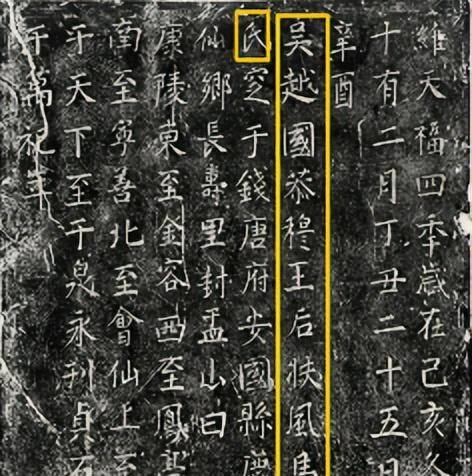 維天福四季歲在己亥
十有二月丁丑二十五日
辛酉
吳越國恭穆王后扶風馬
民窆于錢唐府安國縣
仙鄉長壽里封盂山曰
康陵東至金容西至鳳
南至寧善北至會仙上至
于天下至于泉永刋貞石
于萬祀年